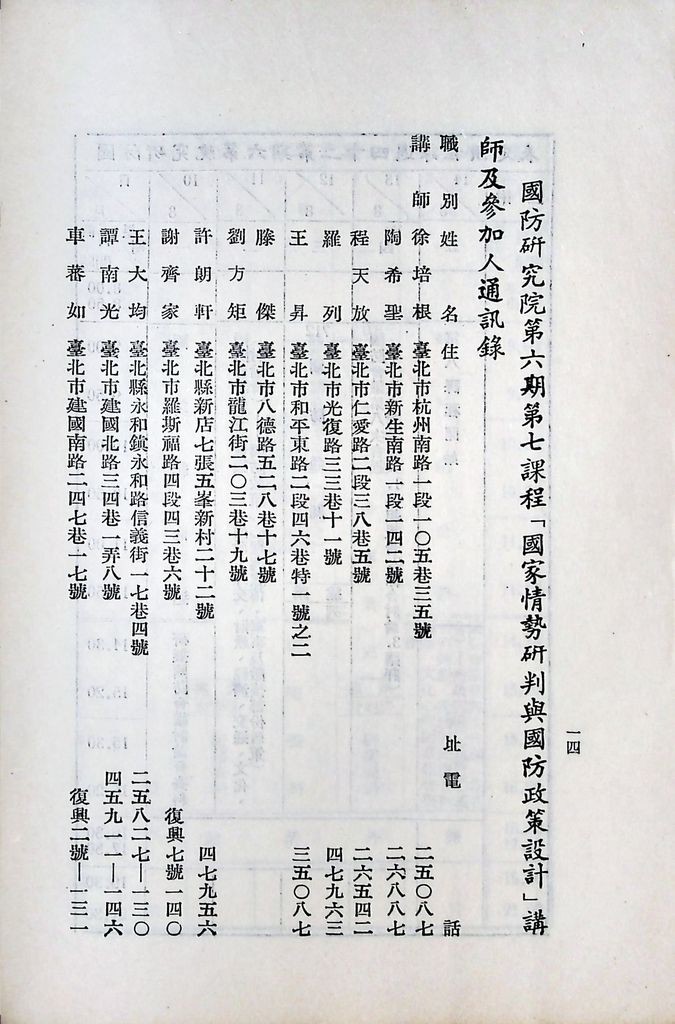 國防研究院第六期第七課程「國家情勢研判與國防政策設計」講
師及參加人通訊錄
職別姓名住址電話
講師徐培根臺北市杭州南路一段一〇五巷三五號二五〇八七
陶希聖臺北市新生南路一段一四二號二六八八七
程天放臺北市仁愛路二段三八巷五號二六五四二
羅列臺北市光復路三三巷十一號四七九六三
王昇臺北市和平東路二段四六巷特一號之二三五〇八七
滕傑臺北市八德路五二八巷十七號
劉方矩臺北市龍江街二〇三巷十九號
許朗軒臺北縣新店七張五峯新村二十二號四七九五六
謝齊家臺北市羅斯福路四段四三巷六號復興七號一四〇
王大均臺北縣永和鎮永和路信義街一七巷四號二五八二七—一三〇
譚南光臺北市建國北路三四巷一弄八號四五九一一—一四六
車蕃如臺北市建國南路二四七巷一七號復興二號—一三一
一四